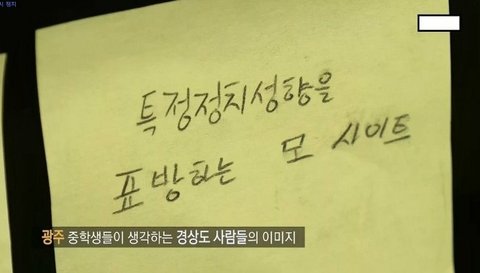 특정정치성향을
표방하는 모 사이트
광주 중학생들이 생각하는 경상도 사람들의 이미지